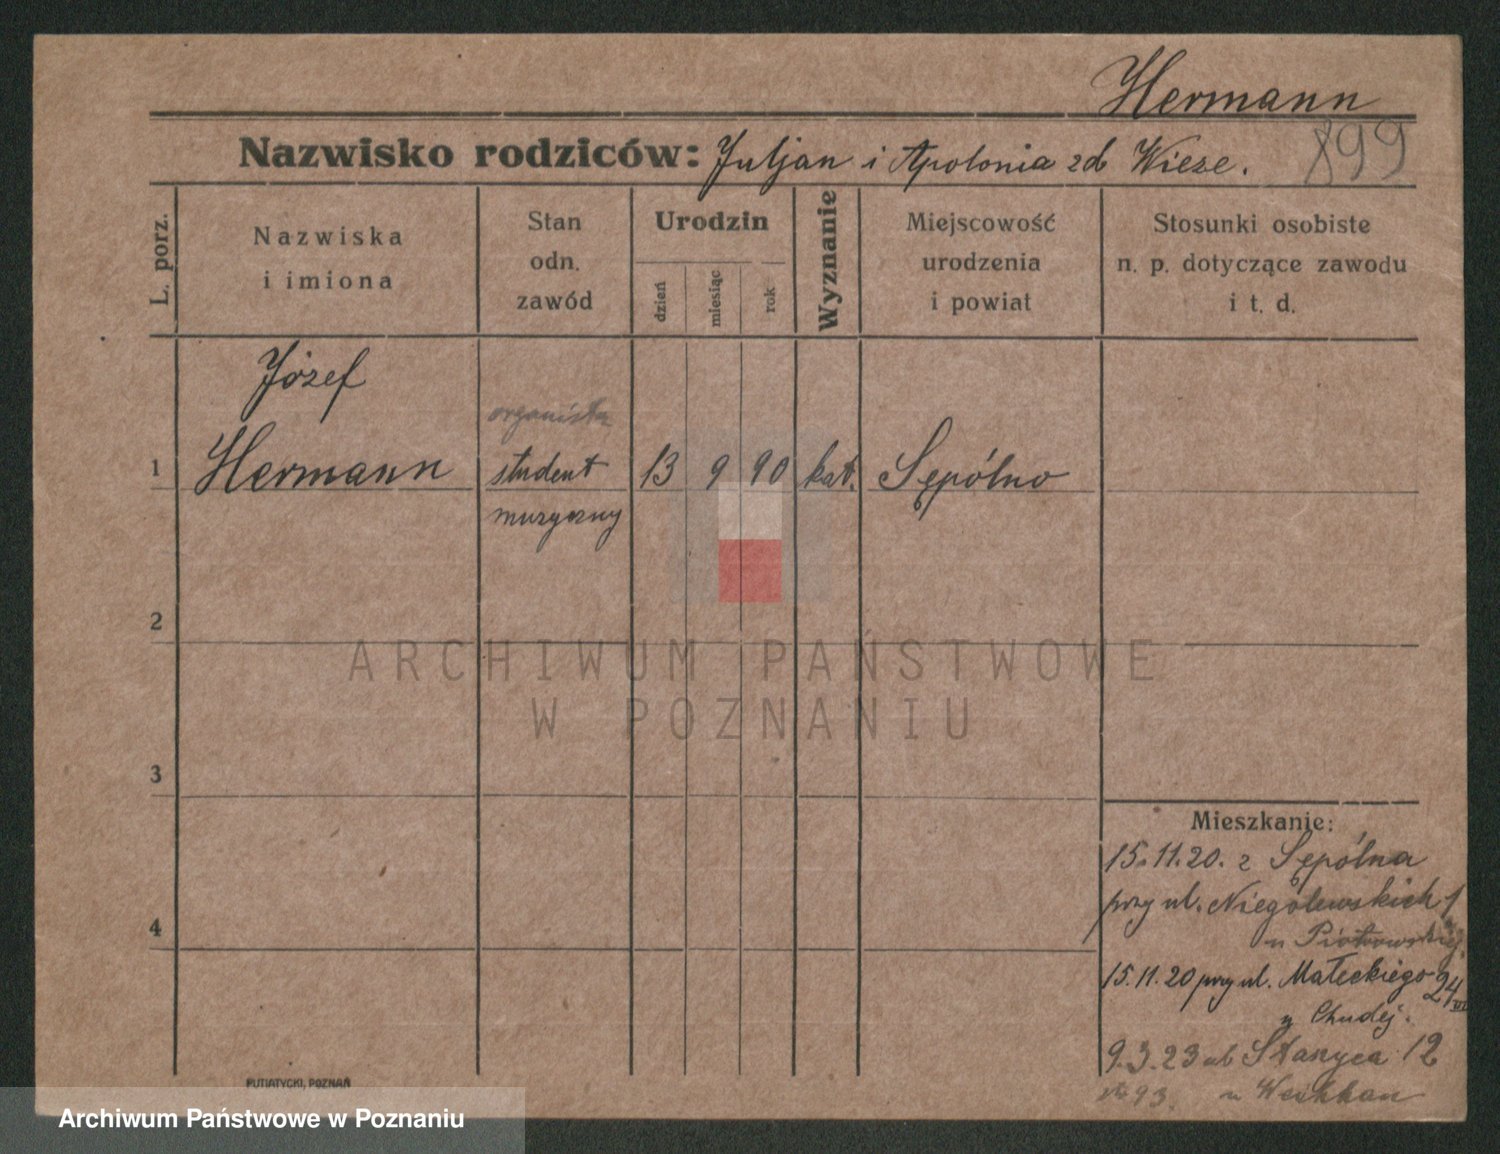 Hermann
Nazwisko rodziców: Juljan i Apolonia zd Wiese.
899
L. porz.
Nazwiska
i imiona
Stan
odn.
zawód
Urodzin
dzień
miesiąc
rok
Wyznanie
Miejscowość
urodzenia
i powiat
Stosunki osobiste
n. p. dotyczące zawodu
i t. d.
Józef
organista
1 Hermann student 13 9 90 kat. Sępólno
muzyczny
2
3
4
Mieszkanie:
15.11.20. z Sępólna
przy ul. Niegolewskich 1
u Piotrowskiej.
15.11.20 przy ul. Małeckiego 24 VI
u Chudej.
9.3.23 ul 12
93. u
PUTIATYCKI, POZNAŃ
ARCHIWUM PAŃSTWOWE
W POZNANIU
Archiwum Państwowe w Poznaniu